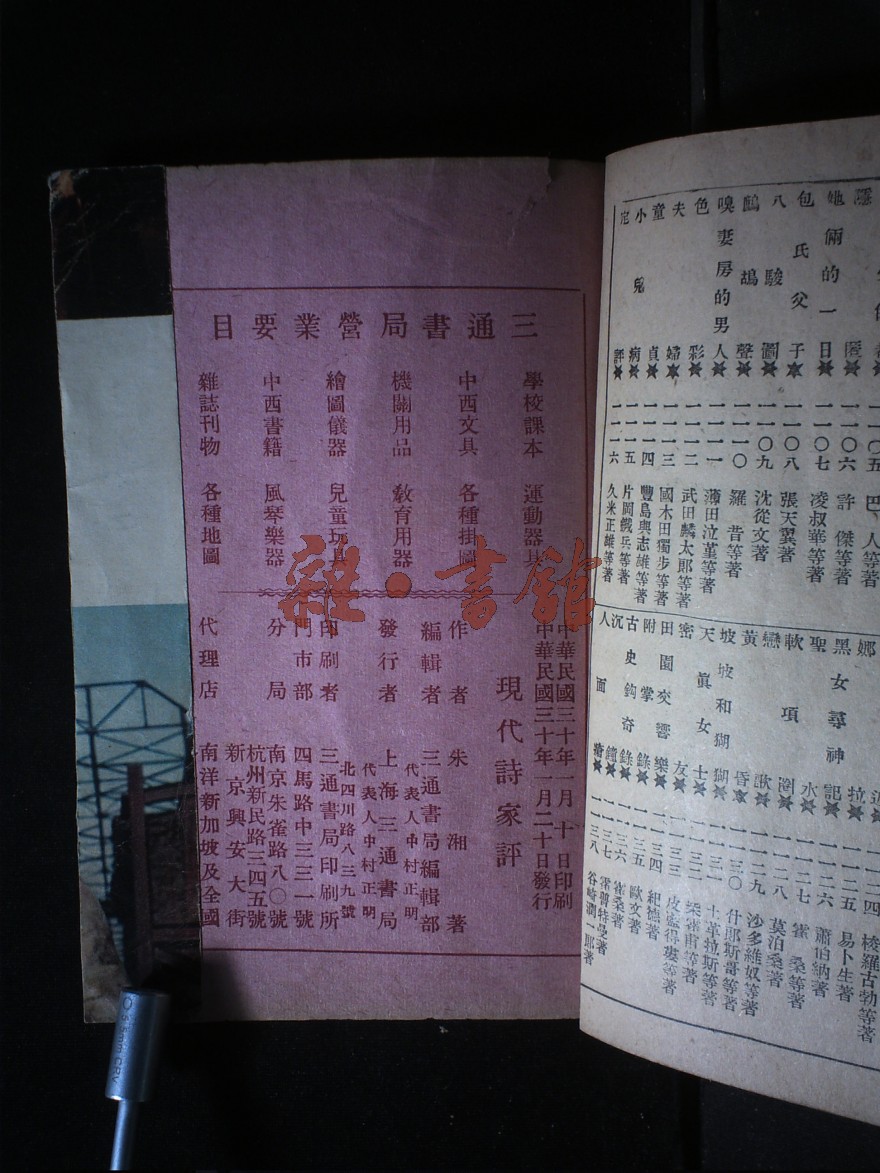 三通書局營業要目
學校課本 運動器具
中西文具 各種掛圖
機關用品 教育用器
繪圖儀器 兒童玩具
中西書籍 風琴樂器
雜誌刊物 各種地圖
中華民國三十年一月十日印刷
中華民國三十年一月二十日發行
現代詩家評
作者 朱湘著
編輯者 三通書局編輯部
代表人中村正明
發行者 上海三通書局
代表人中村正明
北四川路八三九號
印刷者 三通書局印刷所
門市部 四馬路中三三一號
分局 南京朱雀路八〇號
杭州新民路三四五號
新京興安大街
代理店 南洋新加坡及全國
雜·書館
她倆的一日★一〇七 凌叔華等著
包氏父子★一〇八 張天翼著
八駿圖★一〇九 沈從文著
鷓鴣聲★一一〇 羅昔等著
嗅妻房的男人★一一一 薄田泣堇等著
色彩★一一二 武田麟太郎等著
夫婦★一一三 國木田獨步等著
童貞★一一四 豐島與志雄等著
小兒病★一一五 片岡鐵兵等著
定評★一一六 久米正雄等著
娜拉★一二五 易卜生著
黑女尋神記★一二六 蕭伯納著
聖水★一二七 霍桑等著
軟項圈★一二八 莫泊桑著
戀歌★一二九 沙多維奴等著
黃昏★一三〇 什郎斯哥等著
坡坡和猢猢★一三一 土革拉斯等著
天真女士★一三二 梁實甫等著
密友★一三三 皮藍得婁等著
田園交響樂★一三四 紀德著
附掌錄★一三五 歐文著
古史鈎奇錄★一三六 霍桑著
沉鐘★一三七 霍普特曼著
人面瘡★一三八 谷崎潤一郎著
0.5mm CRV